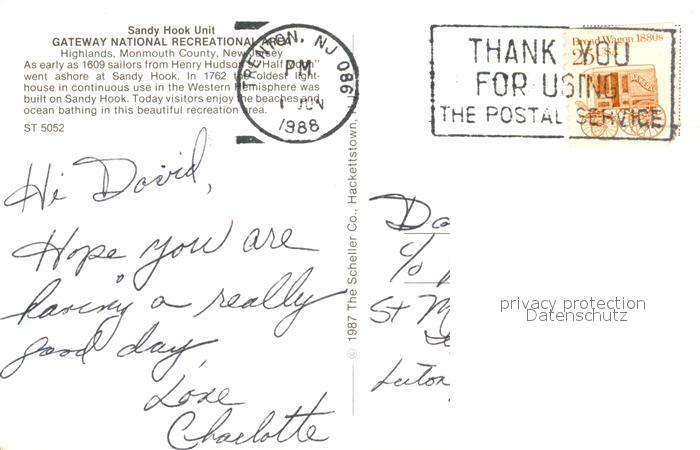 Sandy Hook Unit
GATEWAY NATIONAL RECREATIONAL AREA
Highlands, Monmouth County, New Jersey
As early as 1609 sailors from Henry Hudson's "Half Moon"
went ashore at Sandy Hook. In 1762 the oldest light-
house in continuous use in the Western Hemisphere was
built on Sandy Hook. Today visitors enjoy the beaches and
ocean bathing in this beautiful recreation area.
ST 5052
TRENTON, NJ 086
PM
1 JUN
1988
THANK YOU
FOR USING
THE POSTAL SERVICE
Bread Wagon 1880s
25 USA
Hi David,
Hope you are
having a really
good day,
Love
Charlotte
© 1987 The Scheller Co., Hackettstown,
Da
c/o
St M
Luton
privacy protection
Datenschutz